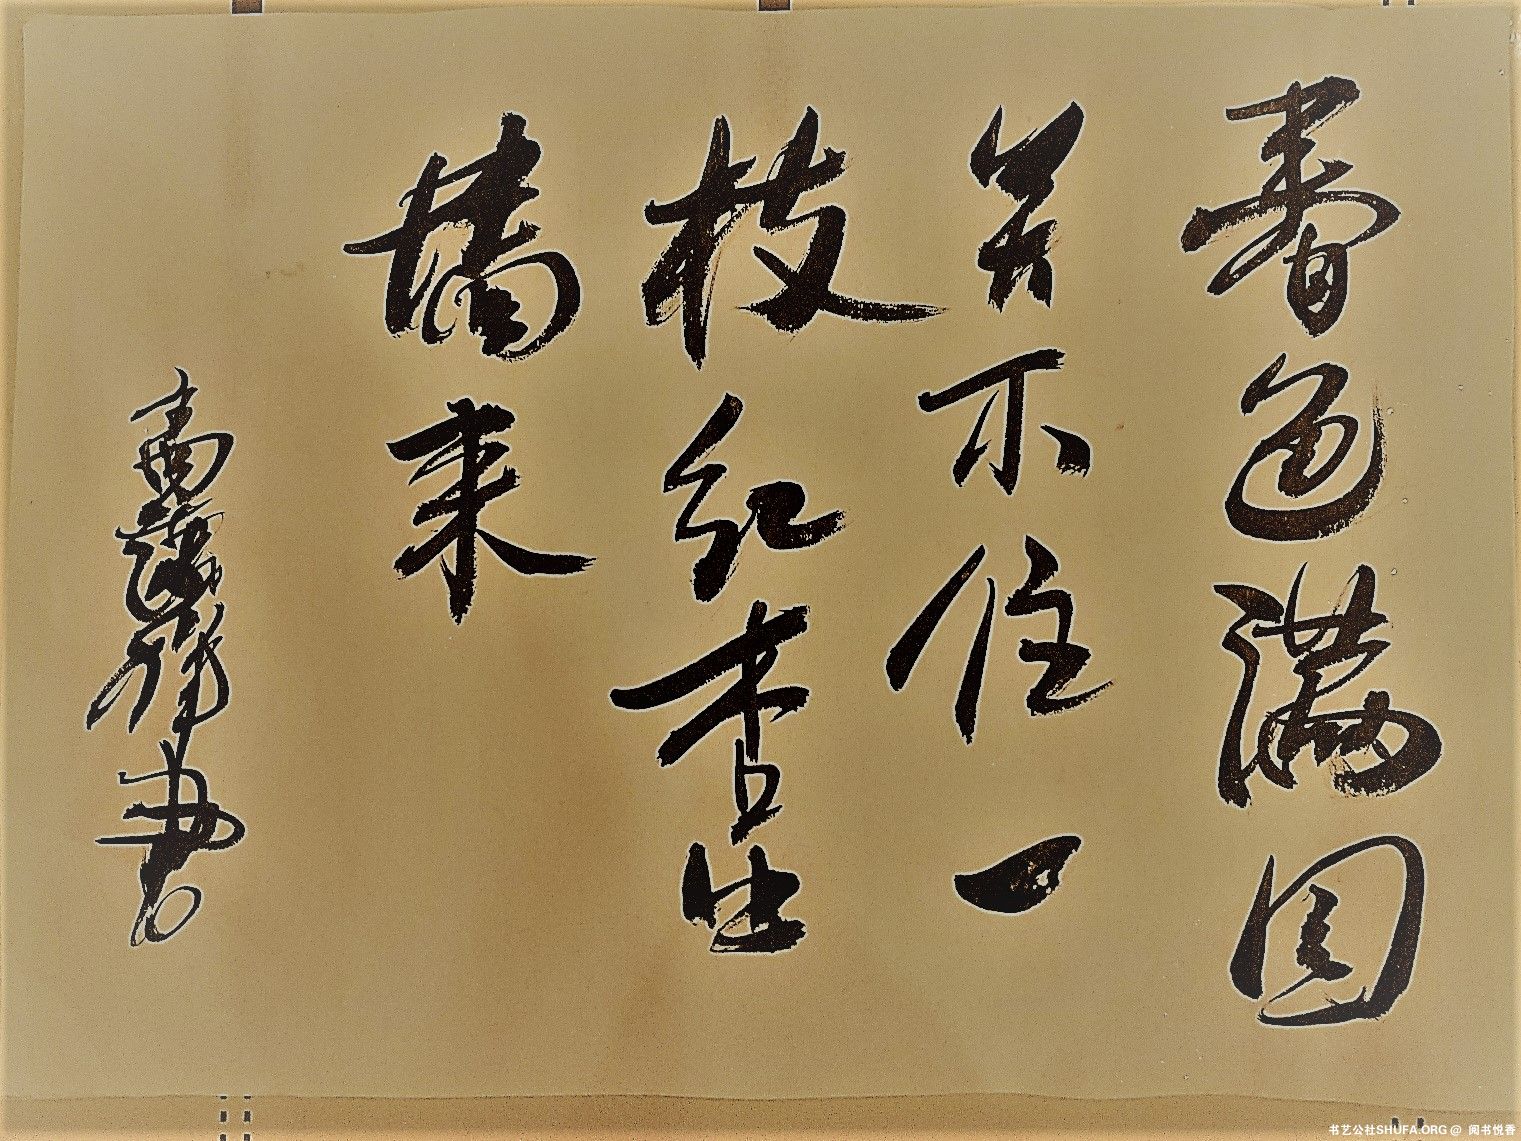 春色满园
关不住一
枝红杏出
墙来
书
书艺公社SHUFA.ORG @ 阅书悦香